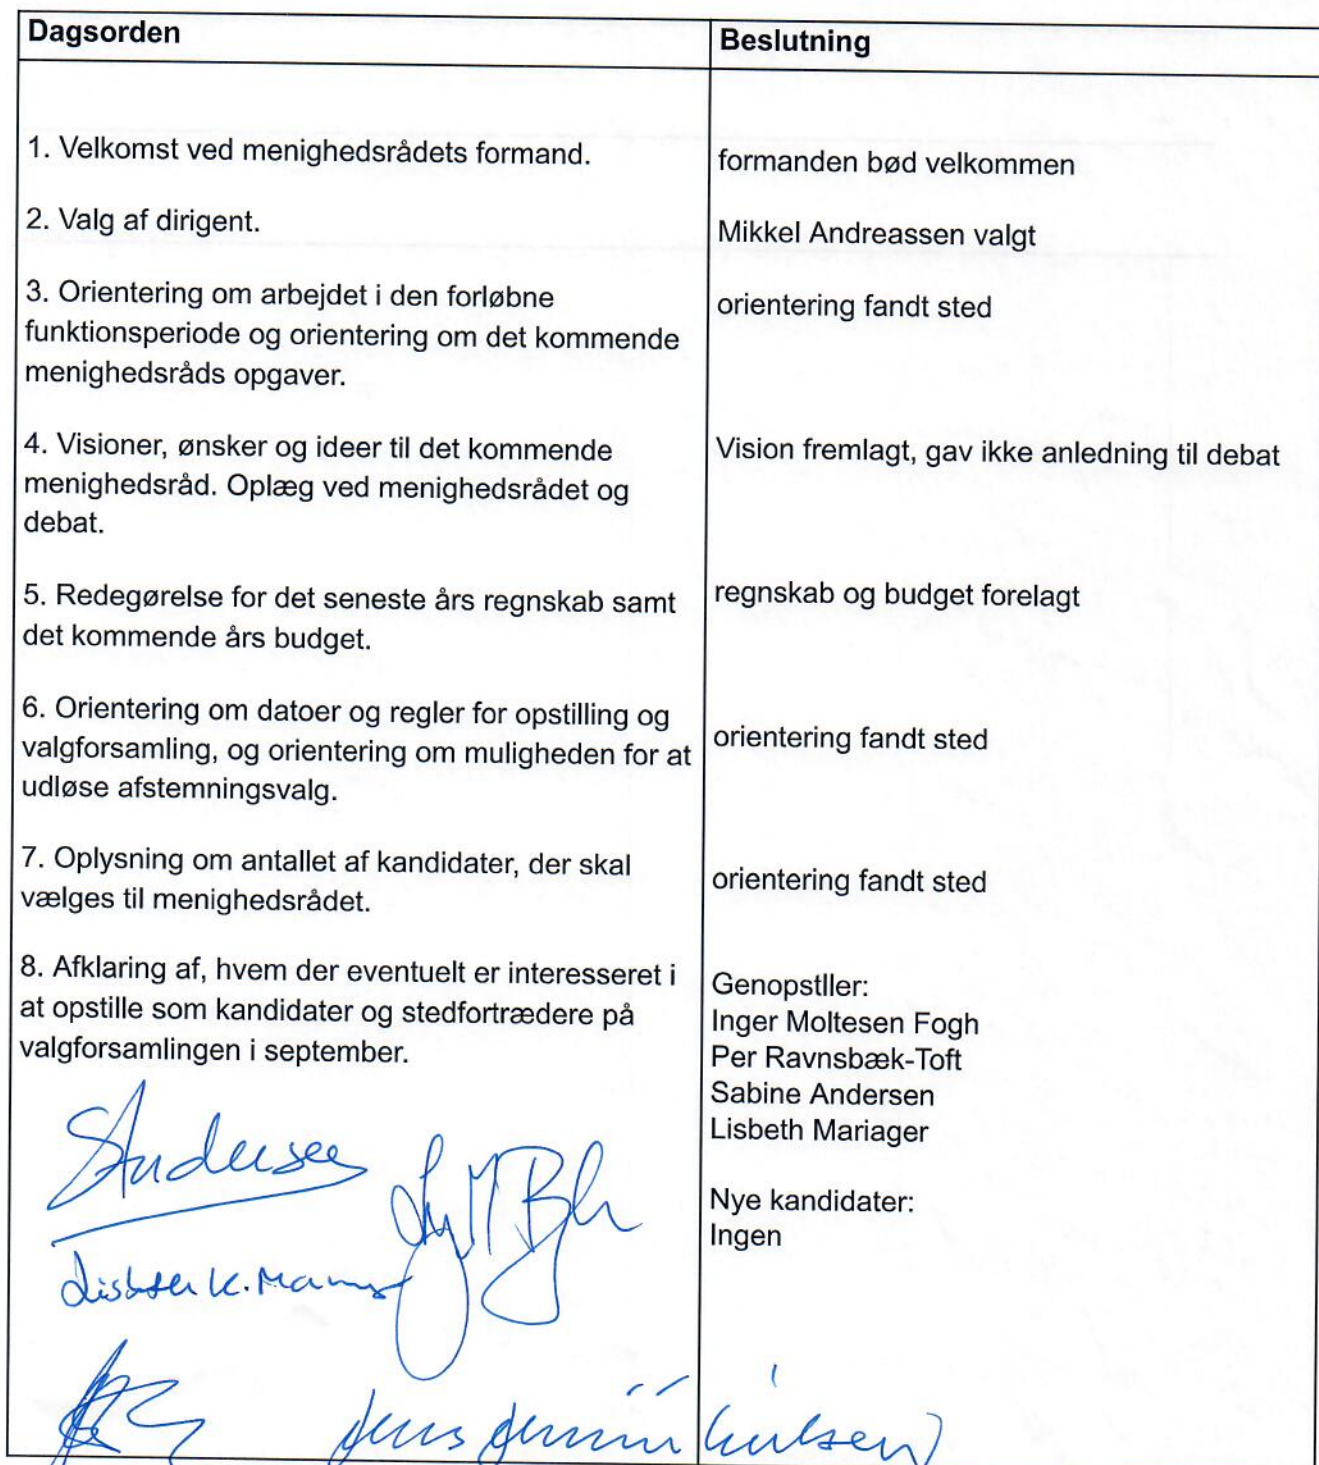 Dagsorden
Beslutning
1. Velkomst ved menighedsrådets formand.
formanden bød velkommen
2. Valg af dirigent.
Mikkel Andreassen valgt
3. Orientering om arbejdet i den forløbne
funktionsperiode og orientering om det kommende
menighedsråds opgaver.
orientering fandt sted
4. Visioner, ønsker og ideer til det kommende
menighedsråd. Oplæg ved menighedsrådet og
debat.
Vision fremlagt, gav ikke anledning til debat
5. Redegørelse for det seneste års regnskab samt
det kommende års budget.
regnskab og budget forelagt
6. Orientering om datoer og regler for opstilling og
valgforsamling, og orientering om muligheden for at
udløse afstemningsvalg.
orientering fandt sted
7. Oplysning om antallet af kandidater, der skal
vælges til menighedsrådet.
orientering fandt sted
8. Afklaring af, hvem der eventuelt er interesseret i
at opstille som kandidater og stedfortrædere på
valgforsamlingen i september.
Genopstller:
Inger Moltesen Fogh
Per Ravnsbæk-Toft
Sabine Andersen
Lisbeth Mariager
Nye kandidater:
Ingen
SAndersen
Lisbeth K.
Jens